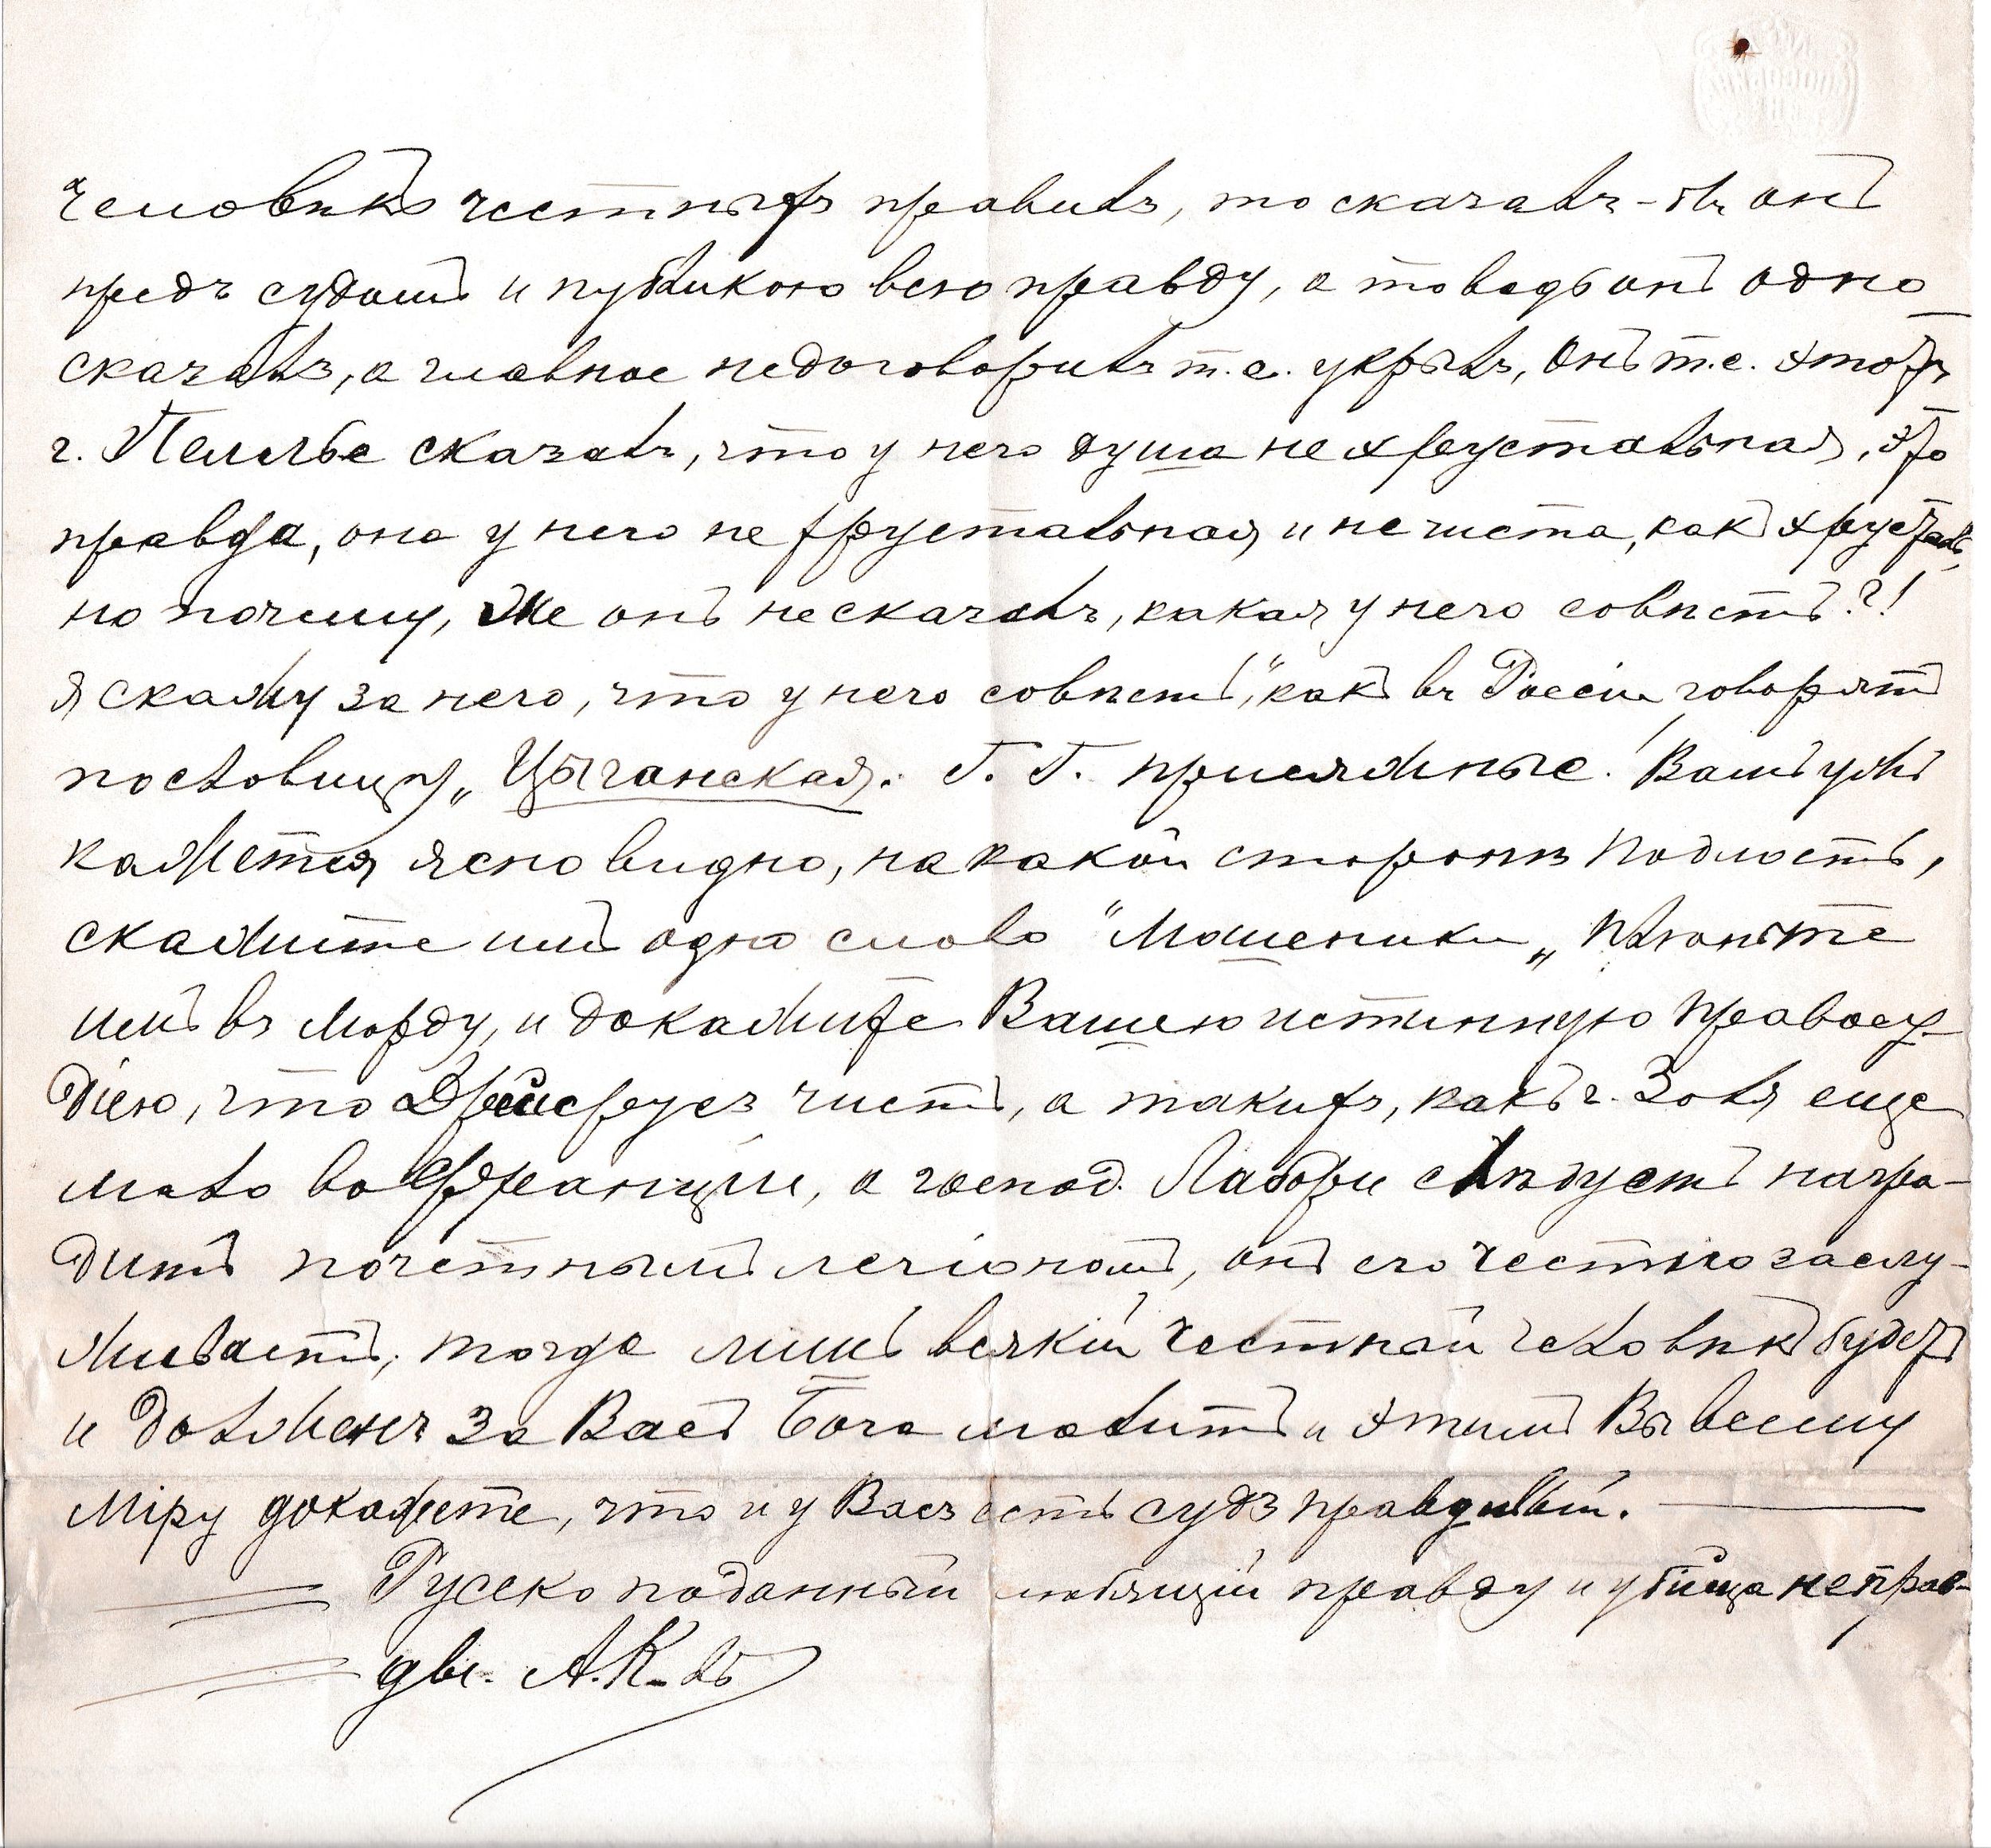 человѣкъ честныхъ правилъ, то сказалъ-бъ онъ
предъ судомъ и публикою всю правду, а то ведь онъ одно
сказалъ, а главное недоговорилъ т.е. укрылъ, Онъ т.е. этотъ
г. Пеллье сказалъ, что у него душа не хрустальная, это
правда, она у него не хрустальная и не чиста, какъ хрусталь,
но почему, же онъ не сказалъ, какая у него совѣсть?!
Я скажу за него, что у него совѣсть, "какъ въ Россіи говорятъ
пословицу„ Цыганская. Г. Г. присяжные! Вамъ ужъ
кажется ясно видно, на какой сторонѣ подлость,
скажите имъ одно слово "Мошеники„ плюньте
имъ въ морду, и докажите Вашею истинную правосу-
діею, что Дрейфусъ чистъ, а такихъ, какъ г. Золя еще
мало во Франціи, а господ. Лабори слѣдуетъ награ-
дить почетнымъ легіономъ, онъ его честно заслу-
живаетъ, тогда лишь всякій честный человѣкъ будетъ
и долженъ за Васъ Бога молить и этимъ Вы всему
міру докажете, что и у Васъ есть судъ правдивый.
Русско поданный любящій правду и убійца неправ-
ды. А.К-въ